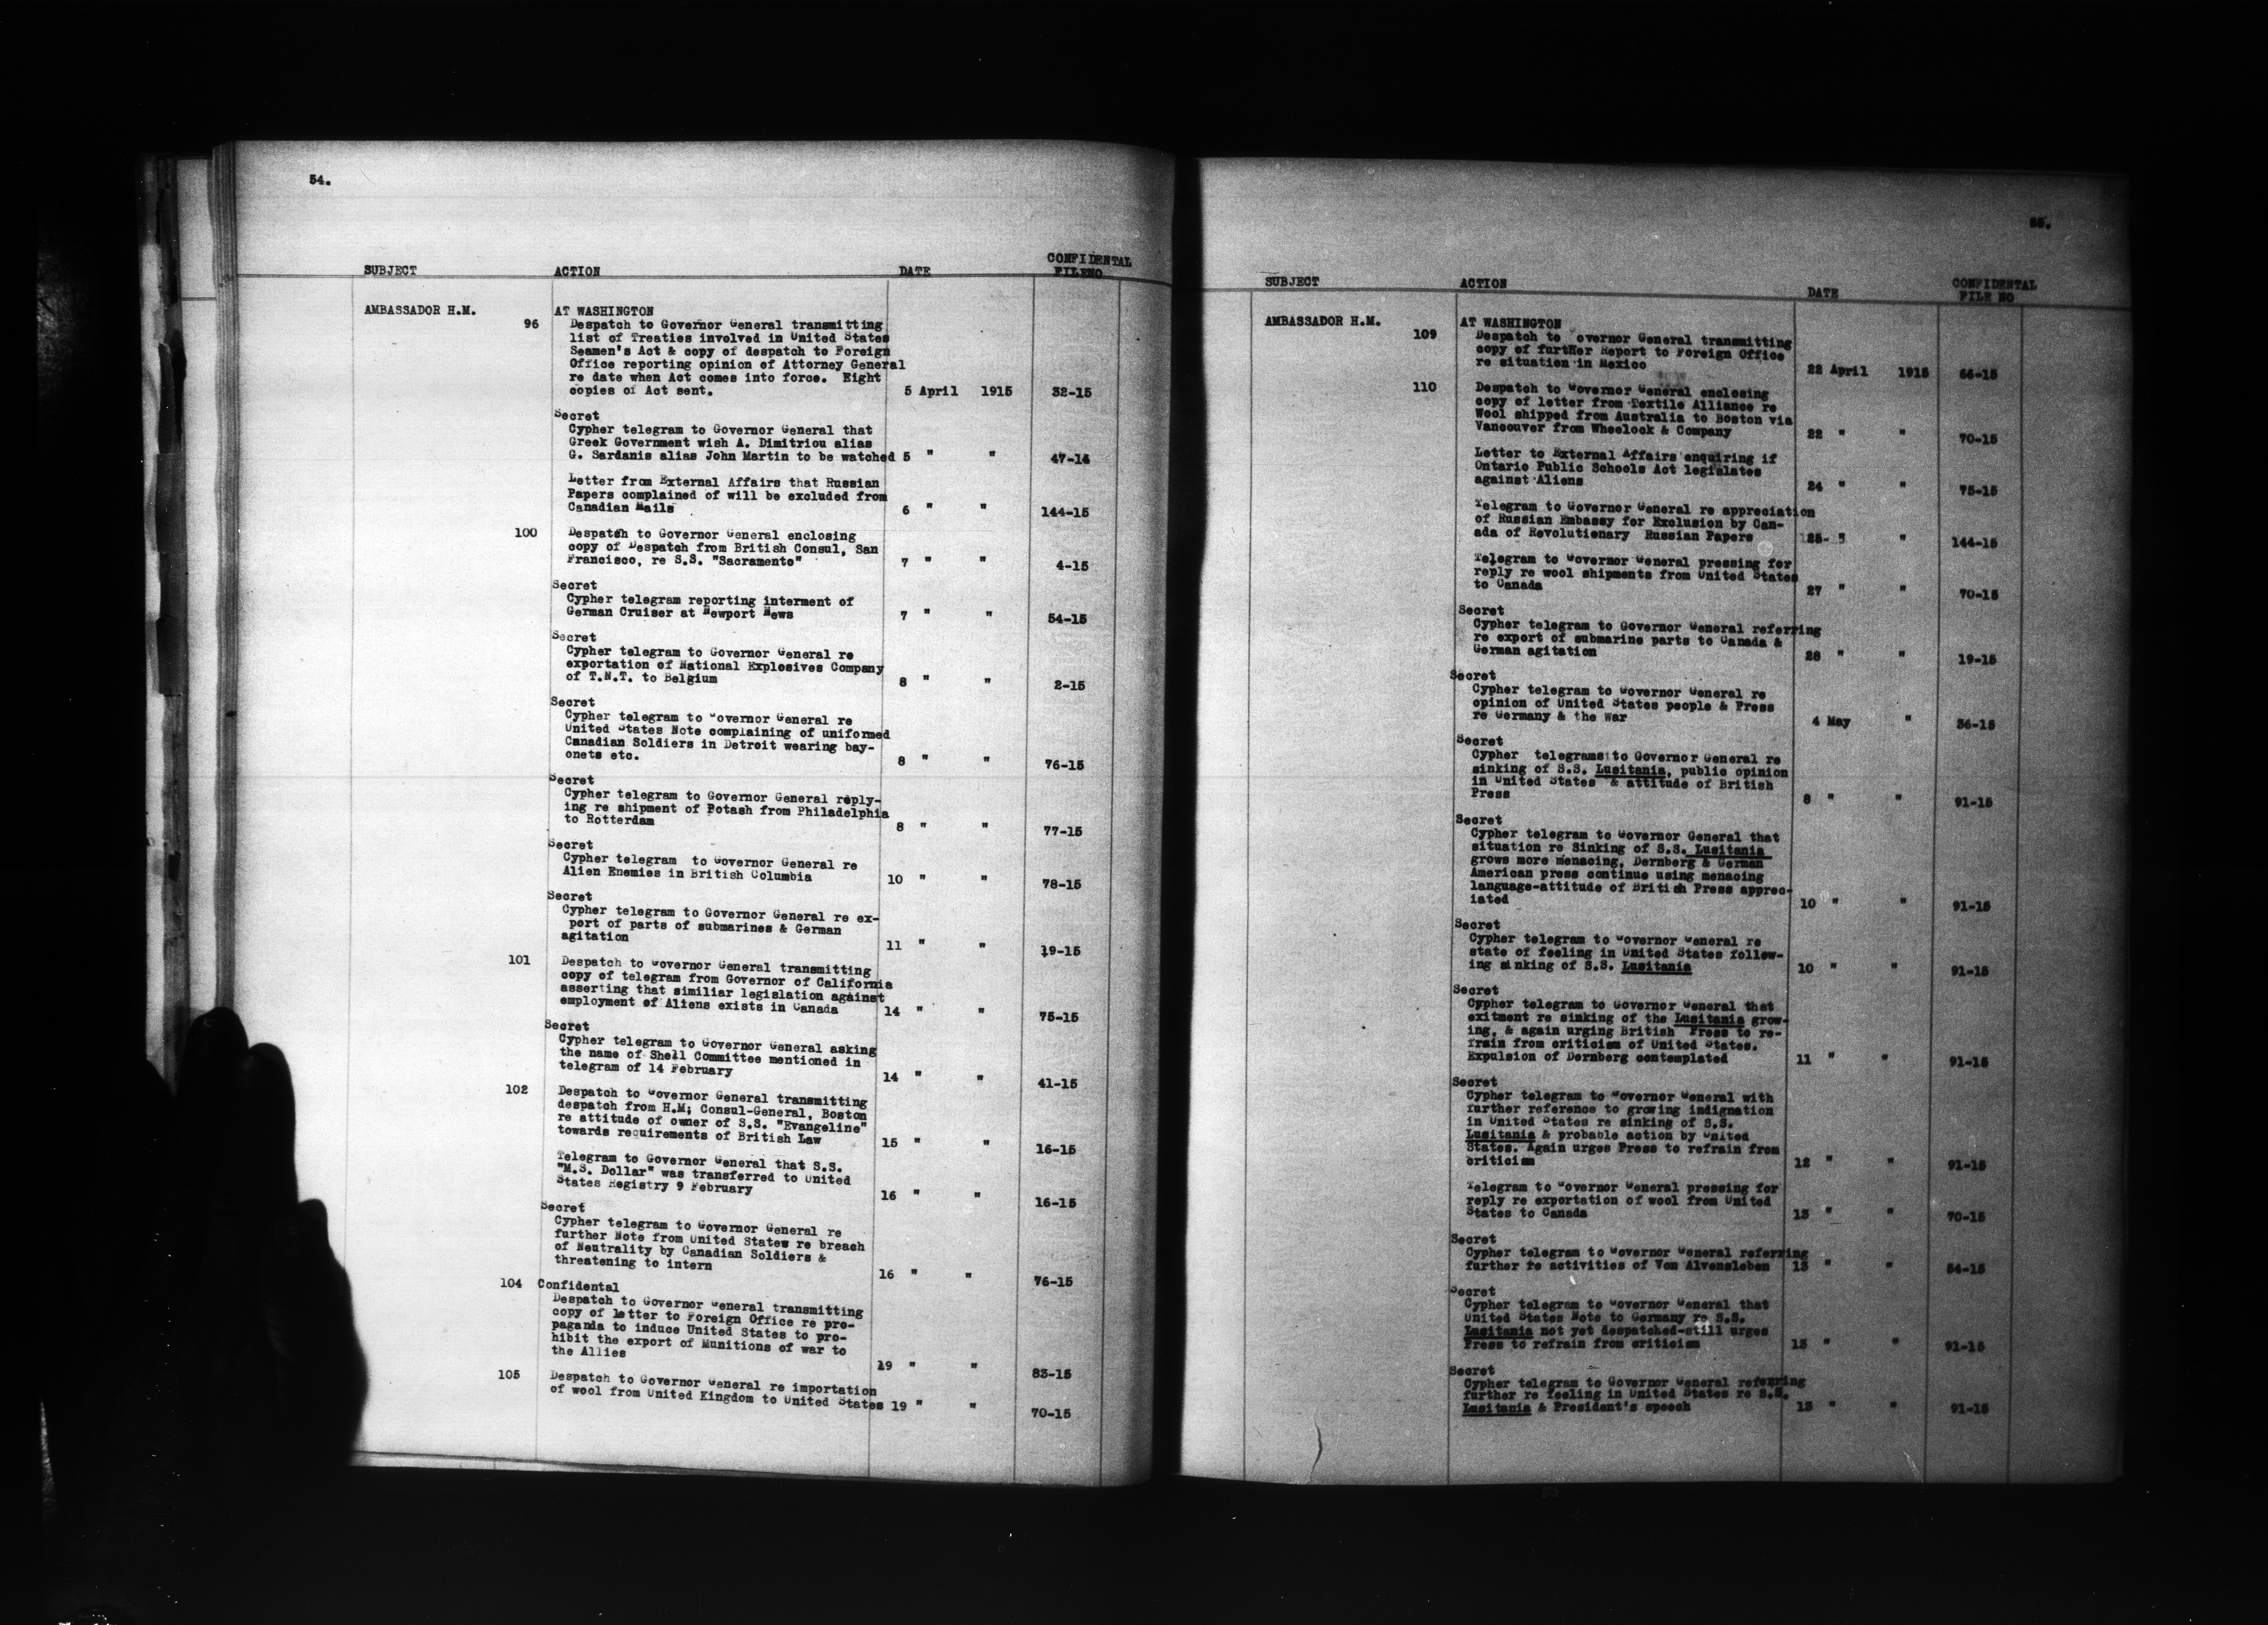 54.
SUBJECT ACTION DATE CONFIDENTAL
FILENO
AMBASSADOR H.M. AT WASHINGTON
96 Despatch to Governor General transmitting
list of Treaties involved in United States
Seamen's Act & copy of despatch to Foreign
Office reporting opinion of Attorney General
re date when Act comes into force. Eight
copies of Act sent. 5 April 1915 32-15
Secret
Cypher telegram to Governor General that
Greek Government wish A. Dimitriou alias
G. Sardanis alias John Martin to be watched 5 " " 47-14
Letter from External Affairs that Russian
Papers complained of will be excluded from
Canadian Mails 6 " " 144-15
100 Despatch to Governor General enclosing
copy of Despatch from British Consul, San
Francisco, re S.S. "Sacramento" 7 " " 4-15
Secret
Cypher telegram reporting interment of
German Cruiser at Newport News 7 " " 54-15
Secret
Cypher telegram to Governor General re
exportation of National Explosives Company
of T.N.T. to Belgium 8 " " 2-15
Secret
Cypher telegram to Governor General re
United States Note complaining of uniformed
Canadian Soldiers in Detroit wearing bay-
onets etc. 8 " " 76-15
Secret
Cypher telegram to Governor General reply-
ing re shipment of Potash from Philadelphia
to Rotterdam 8 " " 77-15
Secret
Cypher telegram to Governor General re
Alien Enemies in British Columbia 10 " " 78-15
Secret
Cypher telegram to Governor General re ex-
port of parts of submarines & German
agitation 11 " " 19-15
101 Despatch to Governor General transmitting
copy of telegram from Governor of California
asserting that similiar legislation against
employment of Aliens exists in Canada 14 " " 75-15
Secret
Cypher telegram to Governor General asking
the name of Shell Committee mentioned in
telegram of 14 February 14 " " 41-15
102 Despatch to Governor General transmitting
despatch from H.M; Consul-General, Boston
re attitude of owner of S.S. "Evangeline"
towards requirements of British Law 15 " " 16-15
Telegram to Governor General that S.S.
"M.S. Dollar" was transferred to United
States Registry 9 February 16 " " 16-15
Secret
Cypher telegram to Governor General re
further Note from United States re breach
of Neutrality by Canadian Soldiers &
threatening to intern 16 " " 76-15
104 Confidental
Despatch to Governor General transmitting
copy of letter to Foreign Office re pro-
paganda to induce United States to pro-
hibit the export of Munitions of war to
the Allies 19 " " 83-15
105 Despatch to Governor General re importation
of wool from United Kingdom to United States 19 " " 70-15
55.
SUBJECT ACTION DATE CONFIDENTAL
FILE NO
AMBASSADOR H.M. AT WASHINGTON
109 Despatch to Governor General transmitting
copy of further Report to Foreign Office
re situation in Mexico 22 April 1915 66-15
110 Despatch to Governor General enclosing
copy of letter from Textile Alliance re
Wool shipped from Australia to Boston via
Vancouver from Wheelock & Company 22 " " 70-15
Letter to External Affairs enquiring if
Ontario Public Schools Act legislates
against Aliens 24 " " 75-15
Telegram to Governor General re appreciation
of Russian Embassy for Exclusion by Can-
ada of Revolutionary Russian Papers 25- " " 144-15
Telegram to Governor General pressing for
reply re wool shipments from United States
to Canada 27 " " 70-15
Secret
Cypher telegram to Governor General referring
re export of submarine parts to Canada &
German agitation 28 " " 19-15
Secret
Cypher telegram to Governor General re
opinion of United States people & Press
re Germany & the War 4 May " 36-15
Secret
Cypher telegrams to Governor General re
sinking of S.S. Lusitania, public opinion
in United States & attitude of British
Press 8 " " 91-15
Secret
Cypher telegram to Governor General that
situation re Sinking of S.S. Lusitania
grows more menacing, Dernberg & German
American press continue using menacing
language-attitude of British Press apprec-
iated 10 " " 91-15
Secret
Cypher telegram to Governor General re
state of feeling in United States follow-
ing sinking of S.S. Lusitania 10 " " 91-15
Secret
Cypher telegram to Governor General that
exitment re sinking of the Lusitania grow-
ing, & again urging British Press to re-
frain from criticism of United States.
Expulsion of Dernberg contemplated 11 " " 91-15
Secret
Cypher telegram to Governor General with
further reference to growing indignation
in United States re sinking of S.S.
Lusitania & probable action by United
States. Again urges Press to refrain from
criticism 12 " " 91-15
Telegram to Governor General pressing for
reply re exportation of wool from United
States to Canada 13 " " 70-15
Secret
Cypher telegram to Governor General referring
further re activities of Von Alvensleben 13 " " 54-15
Secret
Cypher telegram to Governor General that
United States Note to Germany re S.S.
Lusitania not yet despatched-still urges
Press to refrain from criticism 13 " " 91-15
Secret
Cypher telegram to Governor General referring
further re feeling in United States re S.S.
Lusitania & President's speech 13 " " 91-15